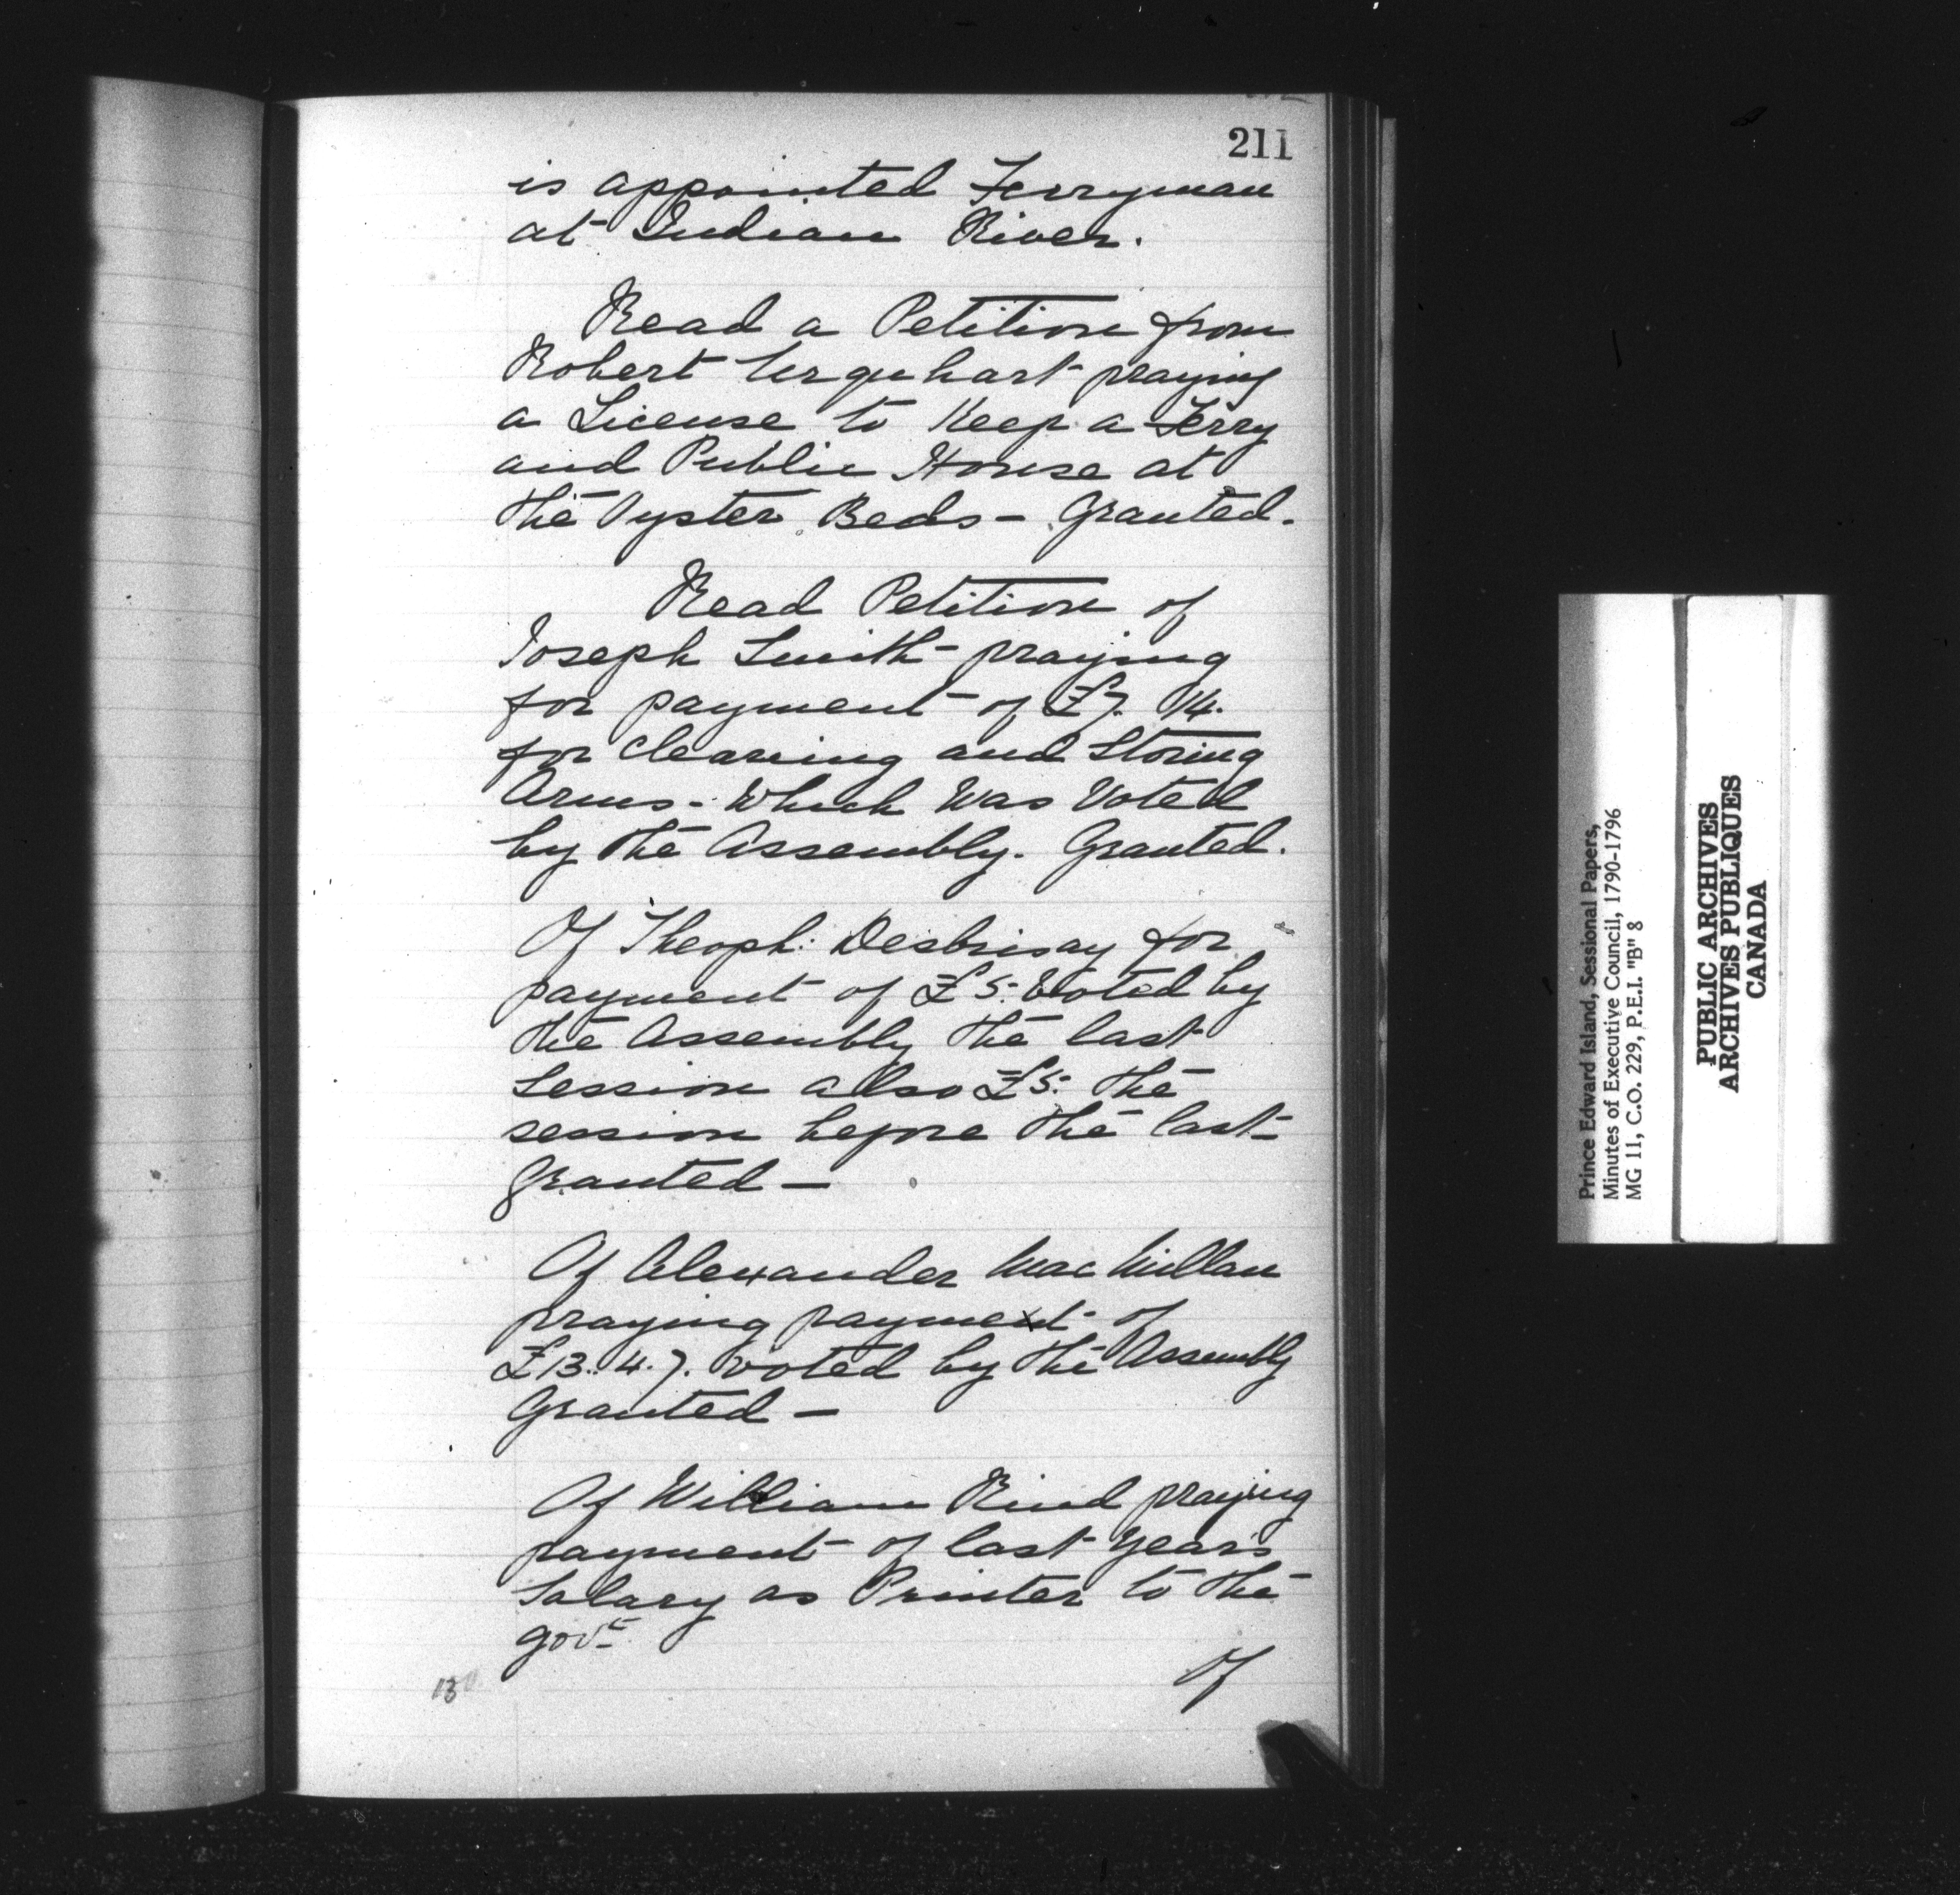 211
is appointed Ferryman
at Indian River.
Read a Petition from
Robert Urquhart praying
a License to Keep a Ferry
and Public House at
the Oyster Beds - Granted.
Read Petition of
Joseph Smith praying
for payment of £7. 14.
for cleaning and Storing
Arms - Which Was Voted
by the Assembly. Granted.
Of Theoph: Desbrisay for
payment of £5: Voted by
the Assembly the last
Session also £5: the
session before the last
granted -
Of Alexander MacMillan
praying payment of
£13. 4. 7. voted by the Assembly
Granted -
Of William Rind praying
payment of last Years
Salary as Printer to the
govt
Of
Prince Edward Island, Sessional Papers,
Minutes of Executive Council, 1790-1796
MG 11, C.O. 229, P.E.I. "B" 8
PUBLIC ARCHIVES
ARCHIVES PUBLIQUES
CANADA